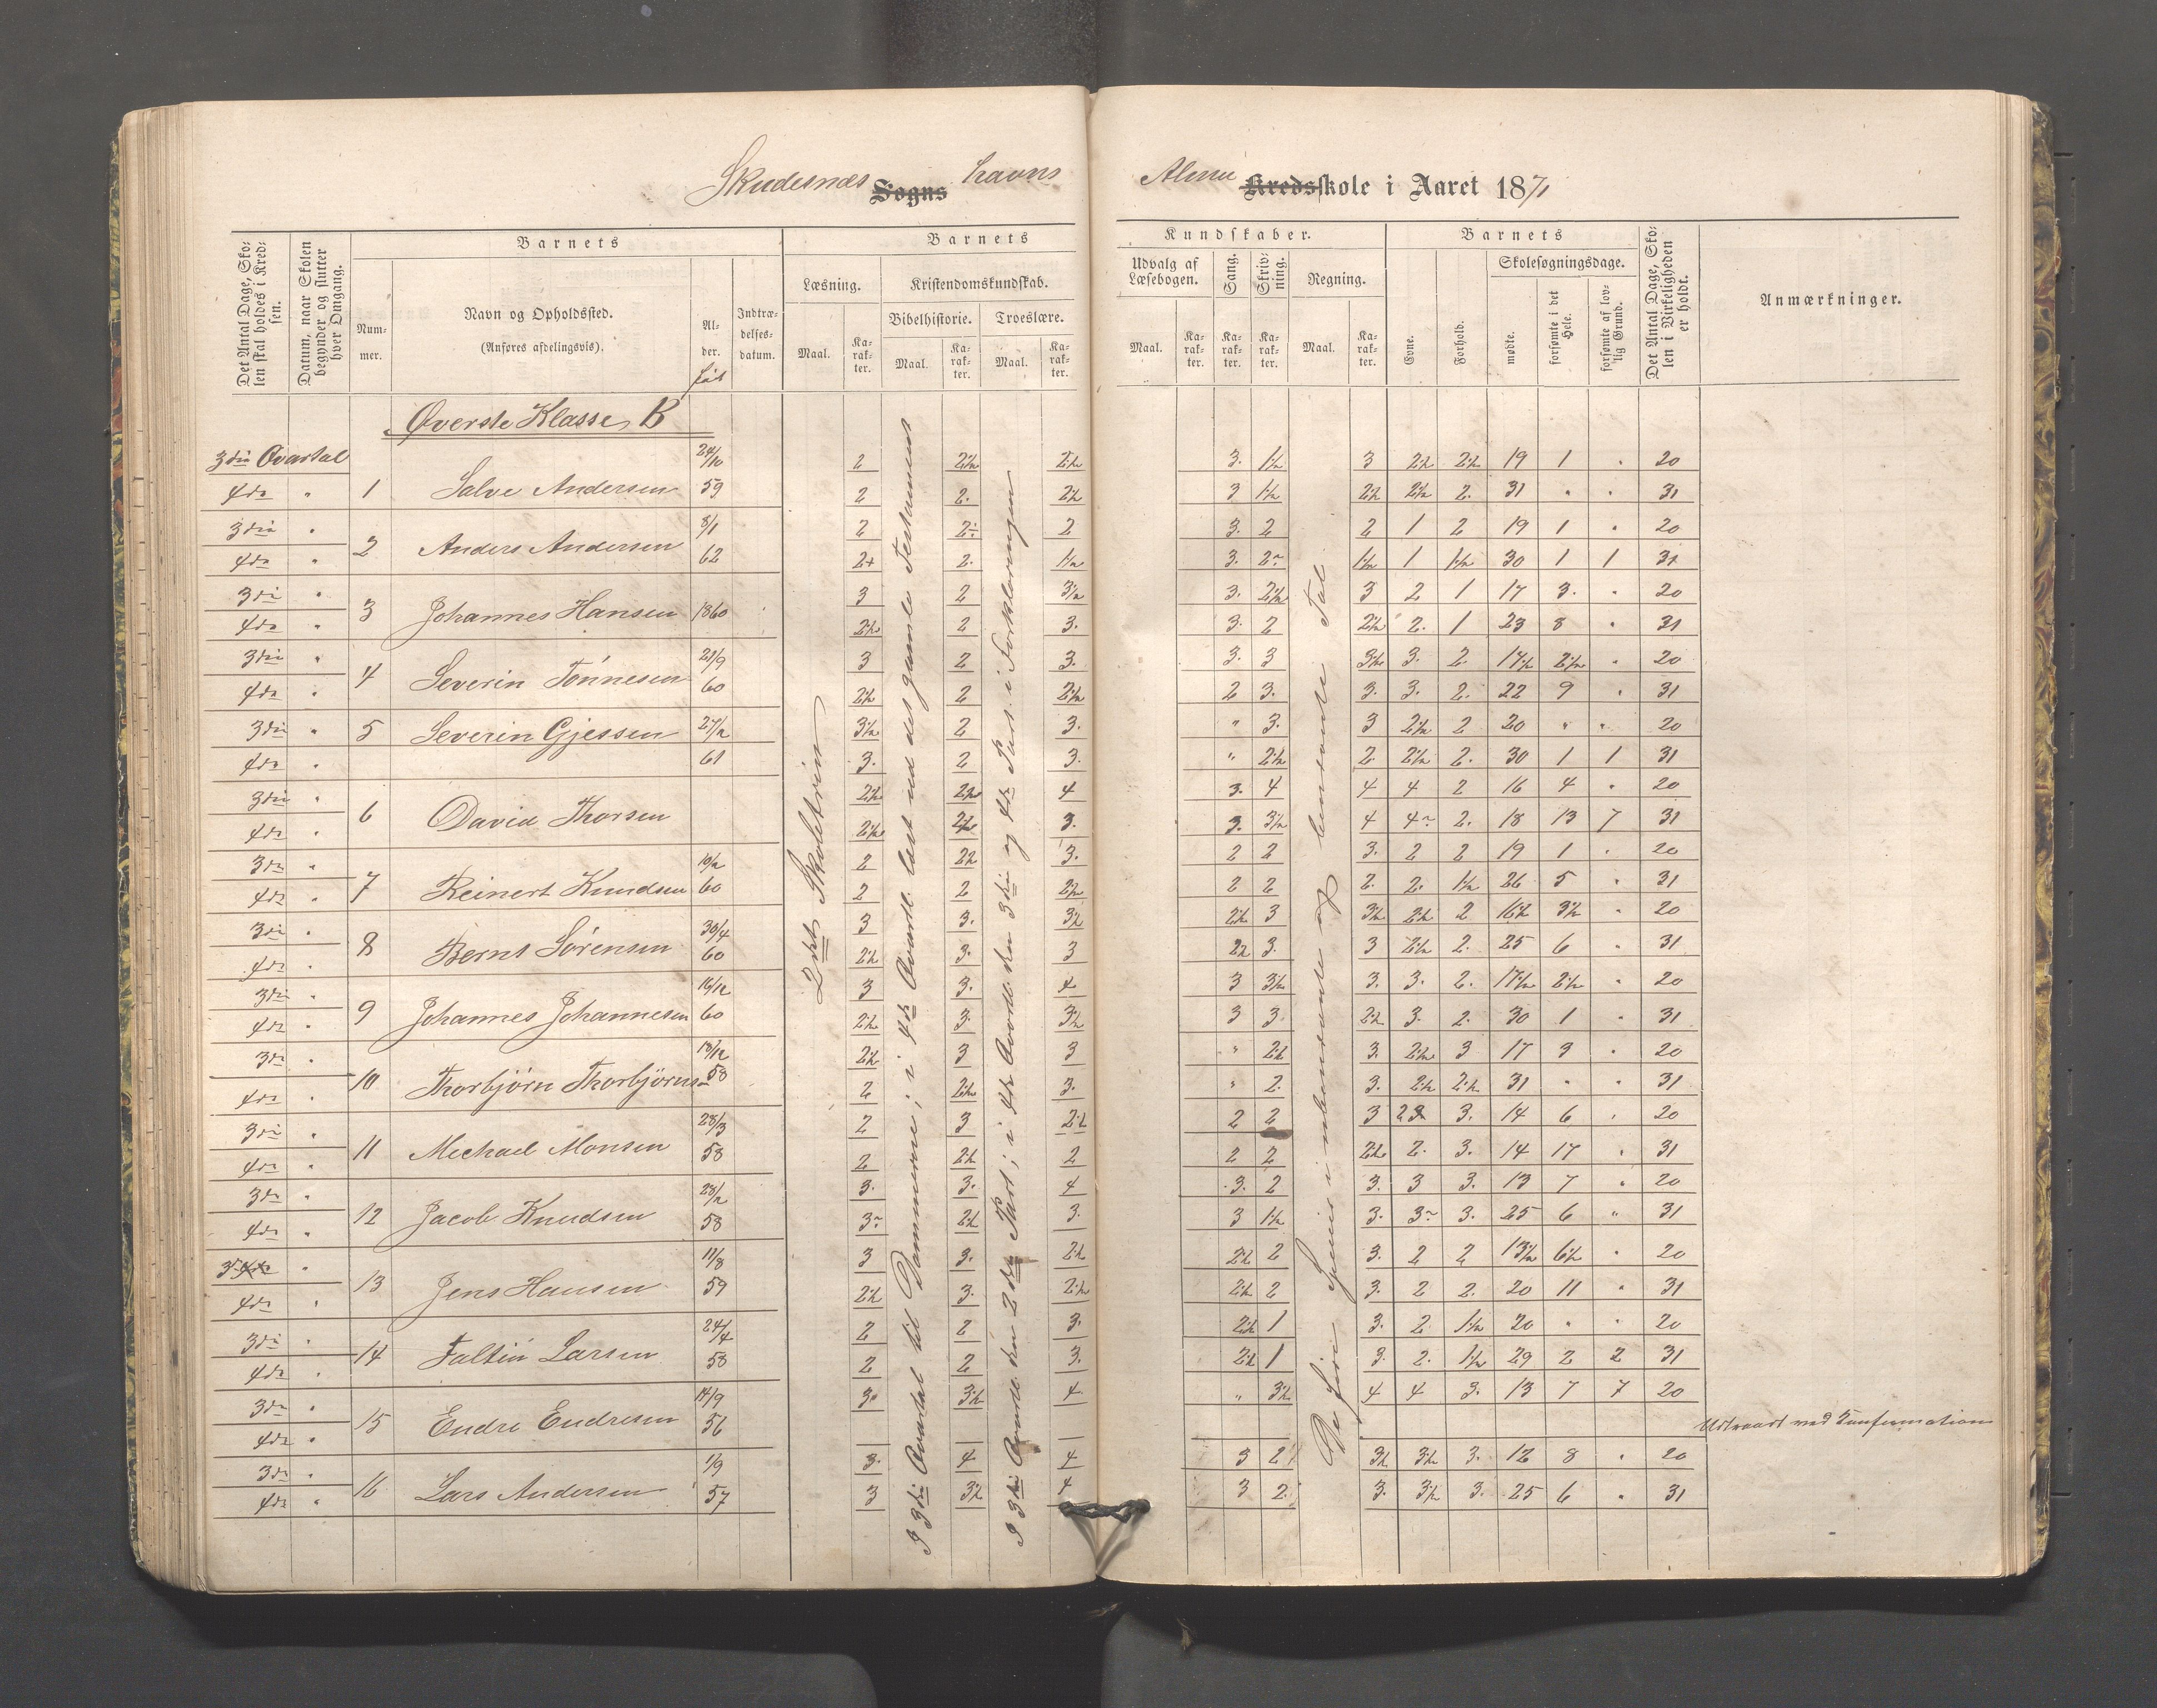 Skudesnæs Sogns havns
Almue Kredsskole i Aaret 1871
Det Antal Dage, Skolen skal holdes i Kredsen.
Datum, naar Skolen begynder og slutter hver Omgang.
Barnets
Nummer.
Navn og Opholdssted.
(Anføres afdelingsvis).
Alder.
født
Indtrædelsesdatum.
Barnets
Læsning.
Kristendomskundskab.
Bibelhistorie. Troeslære.
Maal. Karakter. Maal. Karakter. Maal. Karakter.
Kundskaber.
Udvalg af Læsebogen. Sang. Skrivning. Regning.
Maal. Karakter. Karakter. Karakter. Maal. Karakter.
Barnets
Evne. Forhold.
Skolesøgningsdage.
mødte. forsømte i det Hele. forsømte af lovlig Grund.
Det Antal Dage, Skolen i Virkeligheden er holdt.
Anmærkninger.
Øverste Klasse B
3die Qvartal 24/10 2 2½ 2½ 3. 1½ 3 2½ 2½ 19 1 . 20
4de " 1 Salve Andersen 59 2 2. 2½ 3 1½ 2½ 2½ 2. 31 " . 31
3die " 8/1 2 2 2 3. 2 2 1 2 19 1 " 20
4de " 2 Anders Andersen 62 2+ 2. 1½ 3. 2 1½ 1 1½ 30 1 1 31
3die " 3 2 3½ 3. 2½ 3 2 1 17 3. " 20
4de " 3 Johannes Hansen 1860 2½ 2 3. 3. 2 2½ 2. 1 23 8 " 31
3die " 21/9 3 2 3. 3. 3 3½ 3. 2. 17½ 2½ " 20
4de " 4 Severin Tönnesen 60 2½ 2 2½ 2 3. 3. 3. 2. 22 9 . 31
3die " 5 Severin Gjessen 27/2 3½ 2 3. " 3. 3 2½ 2 20 " " 20
4de " 61 3. 2 3. " 2½ 2. 2½ 2. 30 1 1 31
3die " 2½ 2½ 4 3. 4 4 4 2 16 4 " 20
4de " 6 David Thorsen 2½ 2½ 3. 3. 3½ 4 4 2. 18 13 7 31
3die " 10/2 2 2½ 3. 2 2 3. 2 2 19 1 . 20
4de " 7 Reinert Knudsen 60 2 2 2½ 2 2 2. 2. 1½ 26 5 " 31
3die " 30/4 3 3. 3½ 2½ 3 3½ 2½ 2 16½ 3½ " 20
4de " 8 Bernt Sörensen 60 2½ 3. 3 2½ 3. 3 2½ 2. 25 6 " 31
3die " 16/12 3 3. 4 3 3½ 3. 3. 2. 17½ 2½ " 20
4de " 9 Johannes Johannesen 60 2½ 3. 3½ 3 3. 2½ 3. 2. 30 1 " 31
3die " 18/12 2½ 3 3 " 2½ 3. 2½ 3 17 3 " 20
4de " 10 Thorbjörn Thorbjörns. 58 2 2½ 3. " 2. 3. 2½ 2½ 31 " " 31
3die " 28/3 2 3 2½ 2 2 3 2 3. 14 6 . 20
4de " 11 Michael Monsen 58 2 2½ 2 2 2 2½ 2. 3. 14 17 . 31
3die " 28/2 3. 3. 4 3. 2 3. 3 3. 13 7 " 20
4de " 12 Jacob Knudsen 58 3 2½ 3. 3 1½ 3. 3 3. 25 6 " 31
3 4de " 11/8 3 3. 2½ 2½ 2 3. 2 2 13½ 6½ " 20
4de " 13 Jens Hansen 59 2½ 3. 2½ 2½ 2 3. 2 2. 20 11 " 31
3die " 24/4 2 2 3. 2½ 1 3. 2 1½ 20 " " 20
4de " 14 Faltin Larsen 58 2 2 3. 2½ 1 3. 2. 1½ 29 2 2 31
3die " 14/9 3. 3½ 4. " 3½ 4 4 3. 13 7 7 20
4de " 15 Endre Endresen 56 Udtraadt ved Confirmation
3die " 1/9 3. 4 4 3 2 3½ 3½ 3. 12 8 . 20
4de " 16 Lars Andersen 57 3 3½ 4 3 2. 3. 3½ 3. 25 6 " 31
2det Skoletrin
I 3die Qvartal til Dommerne; i 4de Qvartl. læst ud det gamle Testament
I 3die Qvartl. den 2den Part; i 4de Qvartl. den 3die og 4de Part. i Forklaringen
De fire Species i ubenævnte og benævnte Tal